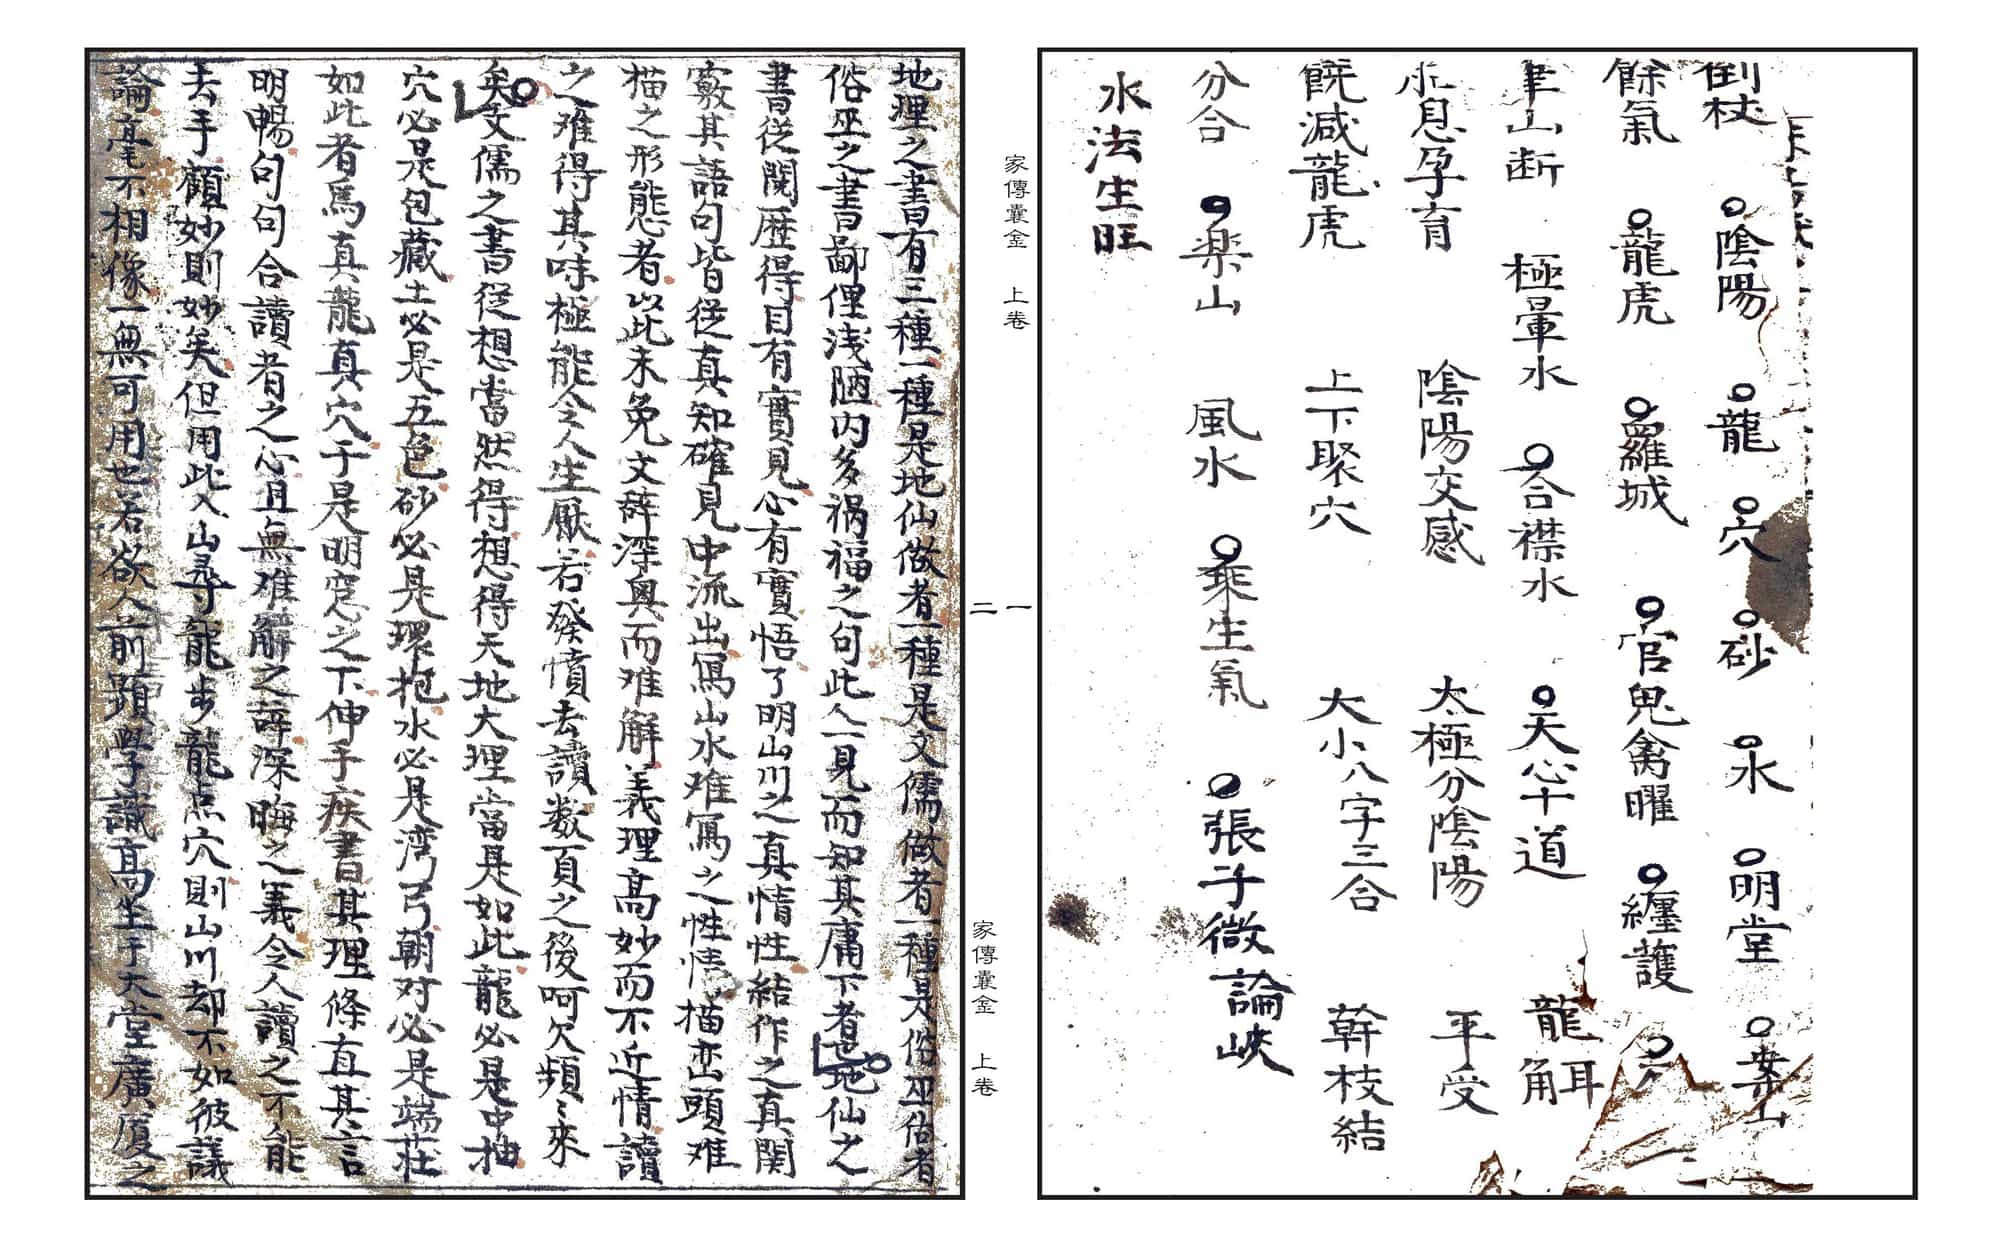 倒杖 陰陽 龍 穴 砂 水 明堂 案山
餘氣 龍虎 羅城 官鬼禽曜 纏護
聿山断 極暈水 合襟水 天心十道 龍角耳
水息孕育 陰陽交感 太極分陰陽 平受
饶減龍虎 上下聚穴 大小八字三合 幹枝結
分合 楽山 風水 乘生氣 張子微論峽
水法生旺
家傳囊金 上卷
一
二
家傳囊金 上卷
地理之書有三種一種是地仙做者一種是文儒做者一種是俗巫估者
俗巫之書鄙俚浅陋内多禍福之句此人一見而知其庸下者也地仙之
書從閱歷得目有實見心有實悟了明山川之真情性結作之真関
竅其語句皆從真知確見中流出寫山水难寫之性情描峦頭难
描之形態者以此未免文辞深奥而难解義理高妙而不近情讀
之难得其味極能令人生厭若發憤去讀数頁之後呵欠頻〻來
矣文儒之書從想當然得想得天地大理當是如此龍必是中抽
穴必是包藏土必是五色砂必是環抱水必是湾弓朝对必是端莊
如此者爲真龍真穴于是明窓之下伸手疾書其理條直其言
明暢句句合讀者之心且無难解之辞深晦之義令人讀之不能
去手顧妙則妙矣但用此入山尋龍步龍点穴則山川却不如彼議
論毫不相像一無可用也若欲人前顕學識高坐于大堂廣厦之